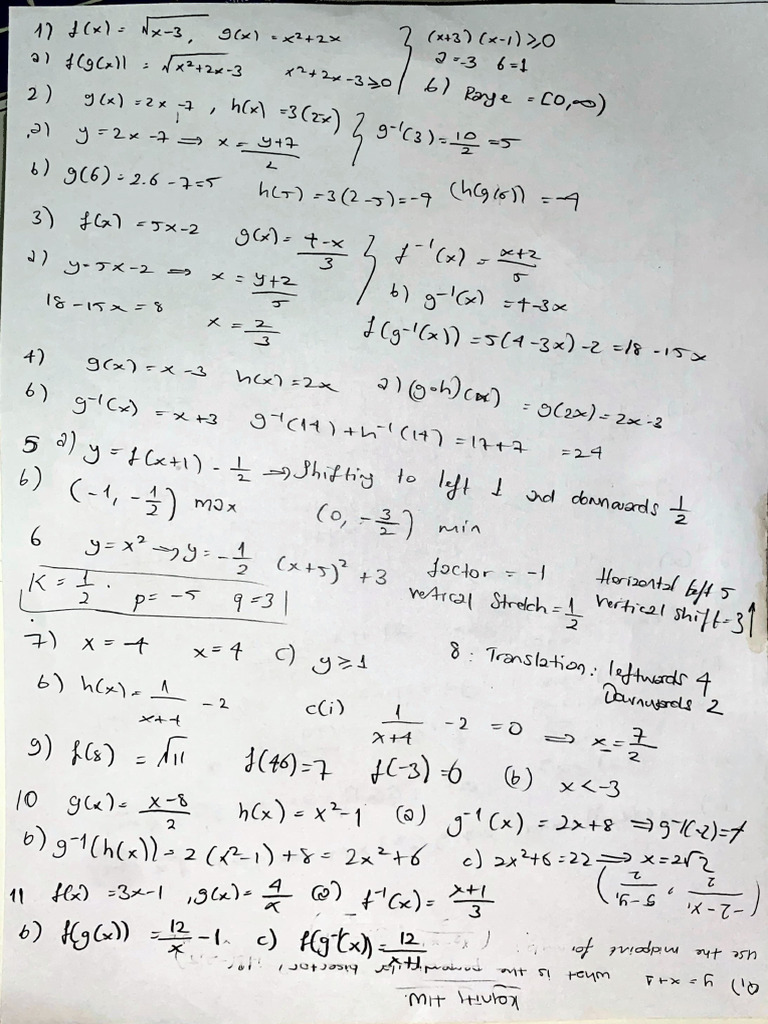 1) f(x) = √x-3, g(x) = x²+2x
a) f(g(x)) = √x²+2x-3 x²+2x-3≥0
(x+3)(x-1)≥0
a=-3 b=1
b) Range = [0,∞)
2) g(x) = 2x-7, h(x) = 3(2x)
a) y = 2x-7 ⇒ x = y+7/2
g⁻¹(3) = 10/2 = 5
b) g(6) = 2.6-7=5 h(5) = 3(2-5) = -9 (h(g(6)) = -9
3) f(x) = 5x-2 g(x) = 4-x/3
a) y=5x-2 ⇒ x = y+2/5
f⁻¹(x) = x+2/5
b) g⁻¹(x) = 4-3x
18-15x = 8 x = 2/3 f(g⁻¹(x)) = 5(4-3x)-2 = 18-15x
4) g(x) = x-3 h(x) = 2x a) (g∘h)(x) = g(2x) = 2x-3
b) g⁻¹(x) = x+3 g⁻¹(14) + h⁻¹(14) = 17+7 = 24
5 a) y = f(x+1) - 1/2 ⇒ shifting to left 1 and downwards 1/2
b) (-1, -1/2) max (0, -3/2) min
6 y = x² → y = -1/2 (x+5)² + 3 factor = -1 Horizontal left 5
vertical Stretch = 1/2 vertical shift = 3↑
K = 1/2. p = -5 q = 3
7) x = -4 x = 4 c) y≥1
8: Translation: leftwards 4
Downwards 2
b) h(x) = 1/x+4 - 2 c(i) 1/x+4 - 2 = 0 ⇒ x = 7/2
9) f(8) = √11 f(46) = 7 f(-3) = 0 (b) x < -3
10 g(x) = x-8/2 h(x) = x²-1 (a) g⁻¹(x) = 2x+8 ⇒ g⁻¹(-2) = 4
b) g⁻¹(h(x)) = 2(x²-1)+8 = 2x²+6 c) 2x²+6=22 ⇒ x=2√2
11 f(x) = 3x-1, g(x) = 4/x (a) f⁻¹(x) = x+1/3
b) f(g(x)) = 12/x - 1 c) f(g⁻¹(x)) = 12/x+1
Kognity HW.
Q1) y = x+2 what is the perpendicular bisector,
use the midpoint for
(-2-x₁/2, 5-y₁/2)